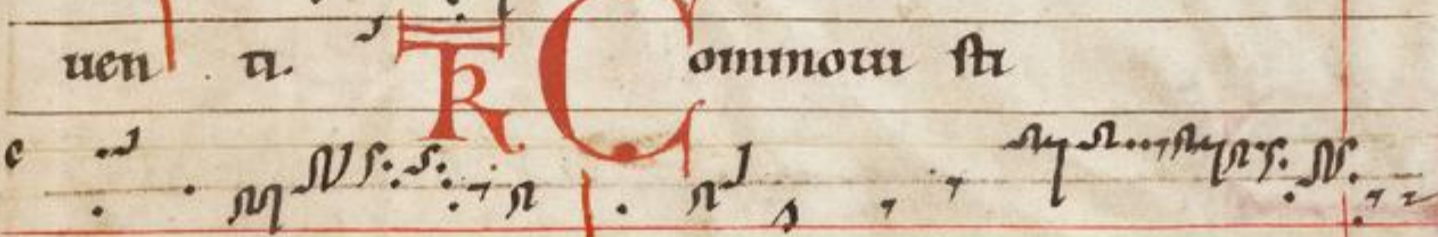 uen ti. TR Commoui sti
c